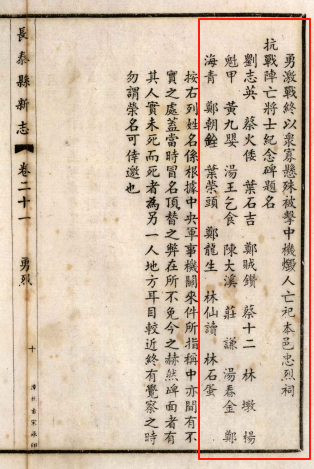 勇激戰終以衆寡懸殊被擊中機燬人亡祀本邑忠烈祠
抗戰陣亡將士紀念碑題名
劉志英 蔡火倭 葉石吉 鄭賊鑽 蔡十二 林墩 楊
魁甲 黃九嬰 湯王乞食 陳大溪 莊謙 湯春金 鄭
海青 鄭朝銓 葉榮頭 鄭龍生 林仙讀 林石蛋
按右列姓名係根據中央軍事機關來件所指稱中亦間有不
實之處蓋當時冒名頂替之弊在所不免今之赫然碑面者有
其人實未死而死者為另一人地方耳目較近終有覺察之時
勿謂榮名可倖邀也
長泰縣新志 卷二十一 勇烈 十